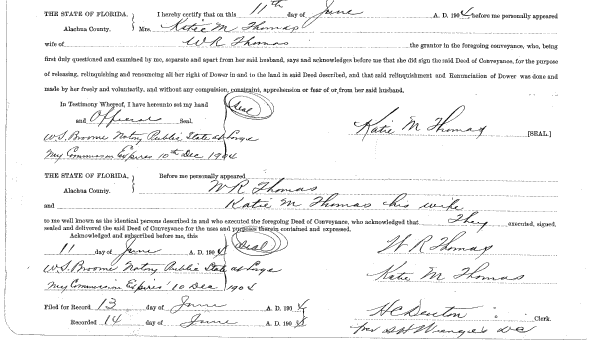 THE STATE OF FLORIDA. I hereby certify that on this 11th day of June A. D. 1904 before me personally appeared
Alachua County. Mrs. Katie M Thomas
wife of W R Thomas the grantor in the foregoing conveyance, who, being
first duly questioned and examined by me, separate and apart from her said husband, says and acknowledges before me that she did sign the said Deed of Conveyance, for the purpose
of releasing, relinquishing and renouncing all her right of Dower in and to the land in said Deed described, and that said relinquishment and Renunciation of Dower was done and
made by her freely and voluntarily, and without any compulsion, constraint, apprehension or fear of or from her said husband.
In Testimony Whereof, I have hereunto set my hand
and Official Seal. Seal
Katie M Thomas [SEAL.]
W.S. Broome Notary Public State at Large
My Commission Expires 10th Dec 1904
THE STATE OF FLORIDA. Before me personally appeared
Alachua County. W R Thomas
and Katie M Thomas his wife
to me well known as the identical persons described in and who executed the foregoing Deed of Conveyance, who acknowledged that they executed, signed,
sealed and delivered the said Deed of Conveyance for the uses and purposes therein contained and expressed.
Acknowledged and subscribed before me, this
11 day of June A. D. 1904 Seal
W R Thomas
W.S. Broome Notary Public State at Large
Katie M Thomas
My Commission Expires 10 Dec 1904
Filed for Record 13 day of June A. D. 1904
H C Denton Clerk.
Recorded 14 day of June A. D. 1904
Per S H Wienges D C